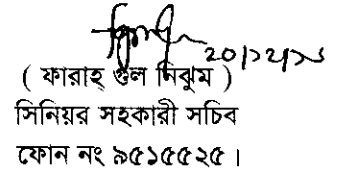 ( ফারাহ্ গুল নিঝুম )
সিনিয়র সহকারী সচিব
ফোন নং ৯৫১৫৫২৫।